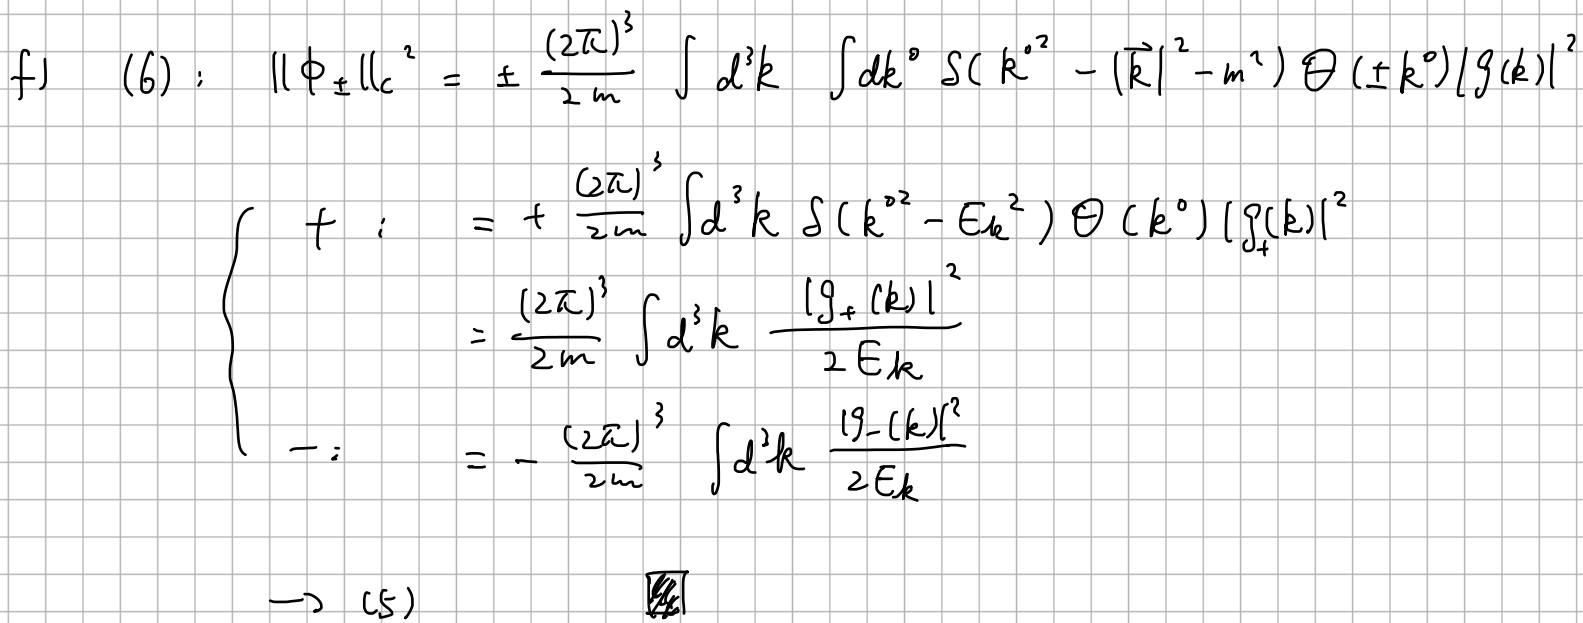 f) (6): ||ϕ_±||_c² = ± (2π)³/2m ∫ d³k ∫ dk⁰ δ(k⁰² - |k⃗|² - m²) Θ(±k⁰) |g(k)|²
+ : = + (2π)³/2m ∫ d³k δ(k⁰² - E_k²) Θ(k⁰) |g₊(k)|²
= (2π)³/2m ∫ d³k |g₊(k)|²/2E_k
- : = - (2π)³/2m ∫ d³k |g₋(k)|²/2E_k
→ (5)